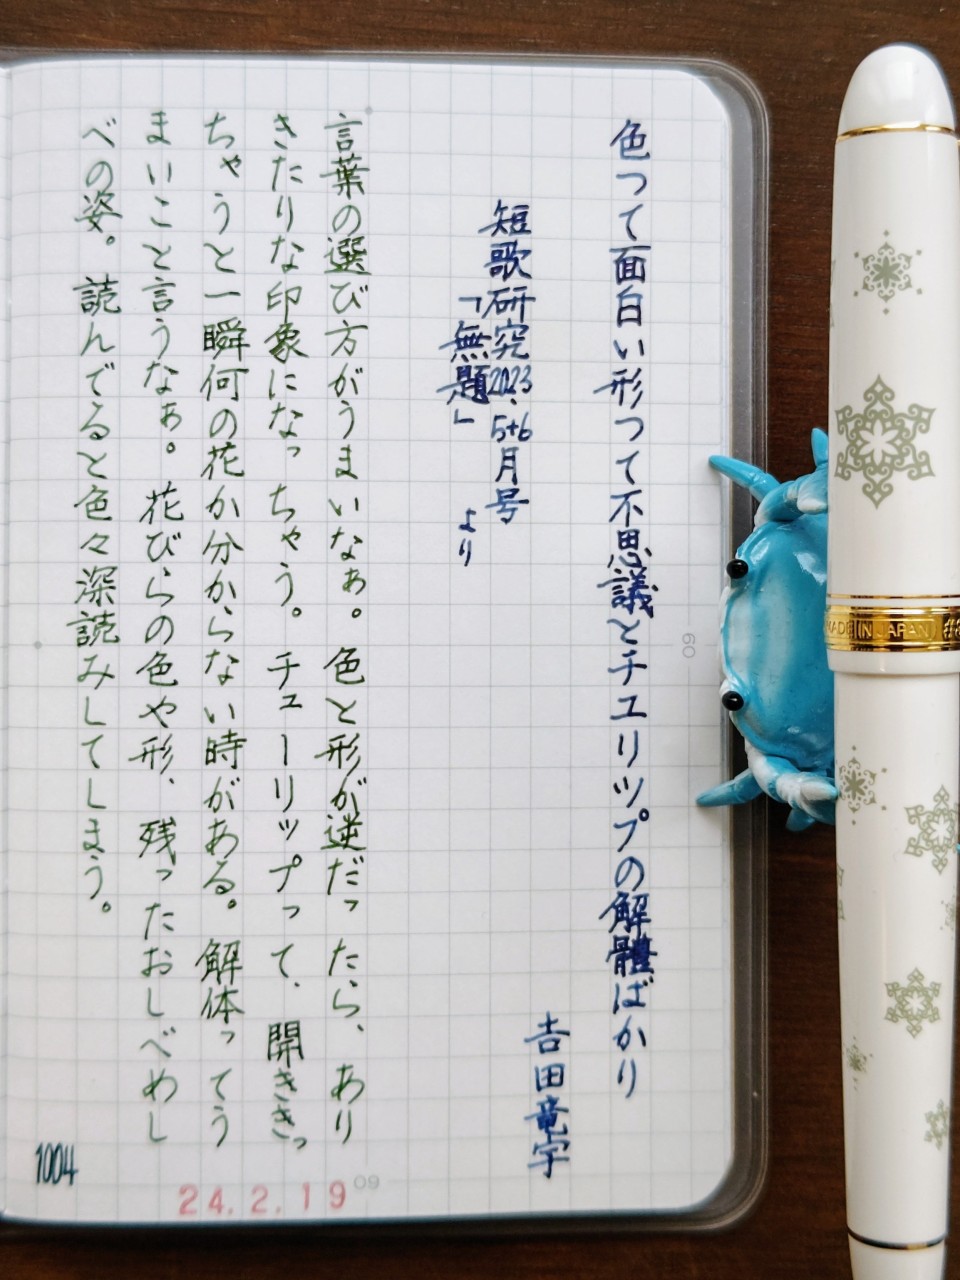 色つて面白い形つて不思議とチユリツプの解體ばかり
吉田竜宇
短歌研究2023.5+6月号
「無題」
より
言葉の選び方がうまいなぁ。色と形が逆だったら、あり
きたりな印象になっちゃう。チューリップって、開ききっ
ちゃうと一瞬何の花か分からない時がある。解体ってう
まいこと言うなぁ。花びらの色や形、残ったおしべめし
べの姿。読んでると色々深読みしてしまう。
1004
24.2.19
09
60
MADE IN JAPAN